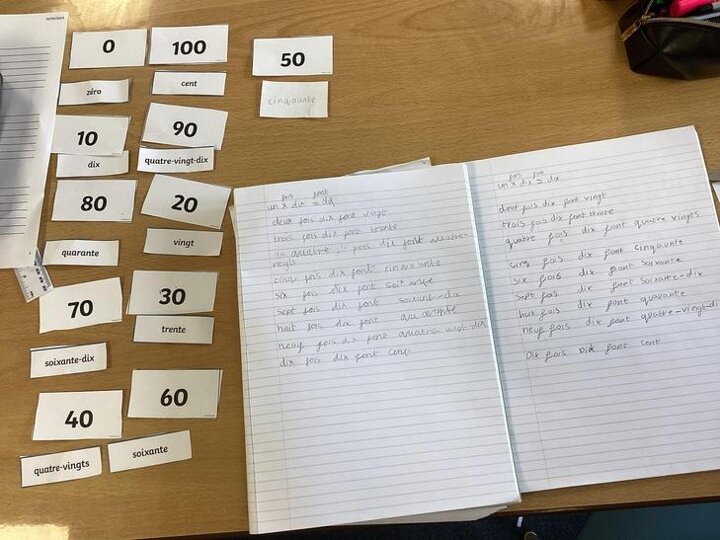 0
100
50
zéro
cent
cinqaunte
10
90
dix
quatre-vingt-dix
80
20
quarante
vingt
70
30
soixante-dix
trente
40
60
quatre-vingts
soixante
fois font
un x dix = dix
deux fois dix font vingt
trois fois dix font trante
quatre fois dix font quatre-
vingts
cinq fois dix font
six fois dix font
sept fois dix font soixant-dix
huit fois dix font
neuf fois dix font quatre-vingt-dix
dix fois dix font cent
fois font
un x dix = dix
deux fois dix font vingt
trois fois dix font trante
quatre fois dix font quatre vingts
cinq fois dix font cinqaunte
six fois dix font soixante
sept fois dix font soixante-dix
huit fois dix font quarante
neuf fois dix font quatre-vingt-di
Dix fois font cent